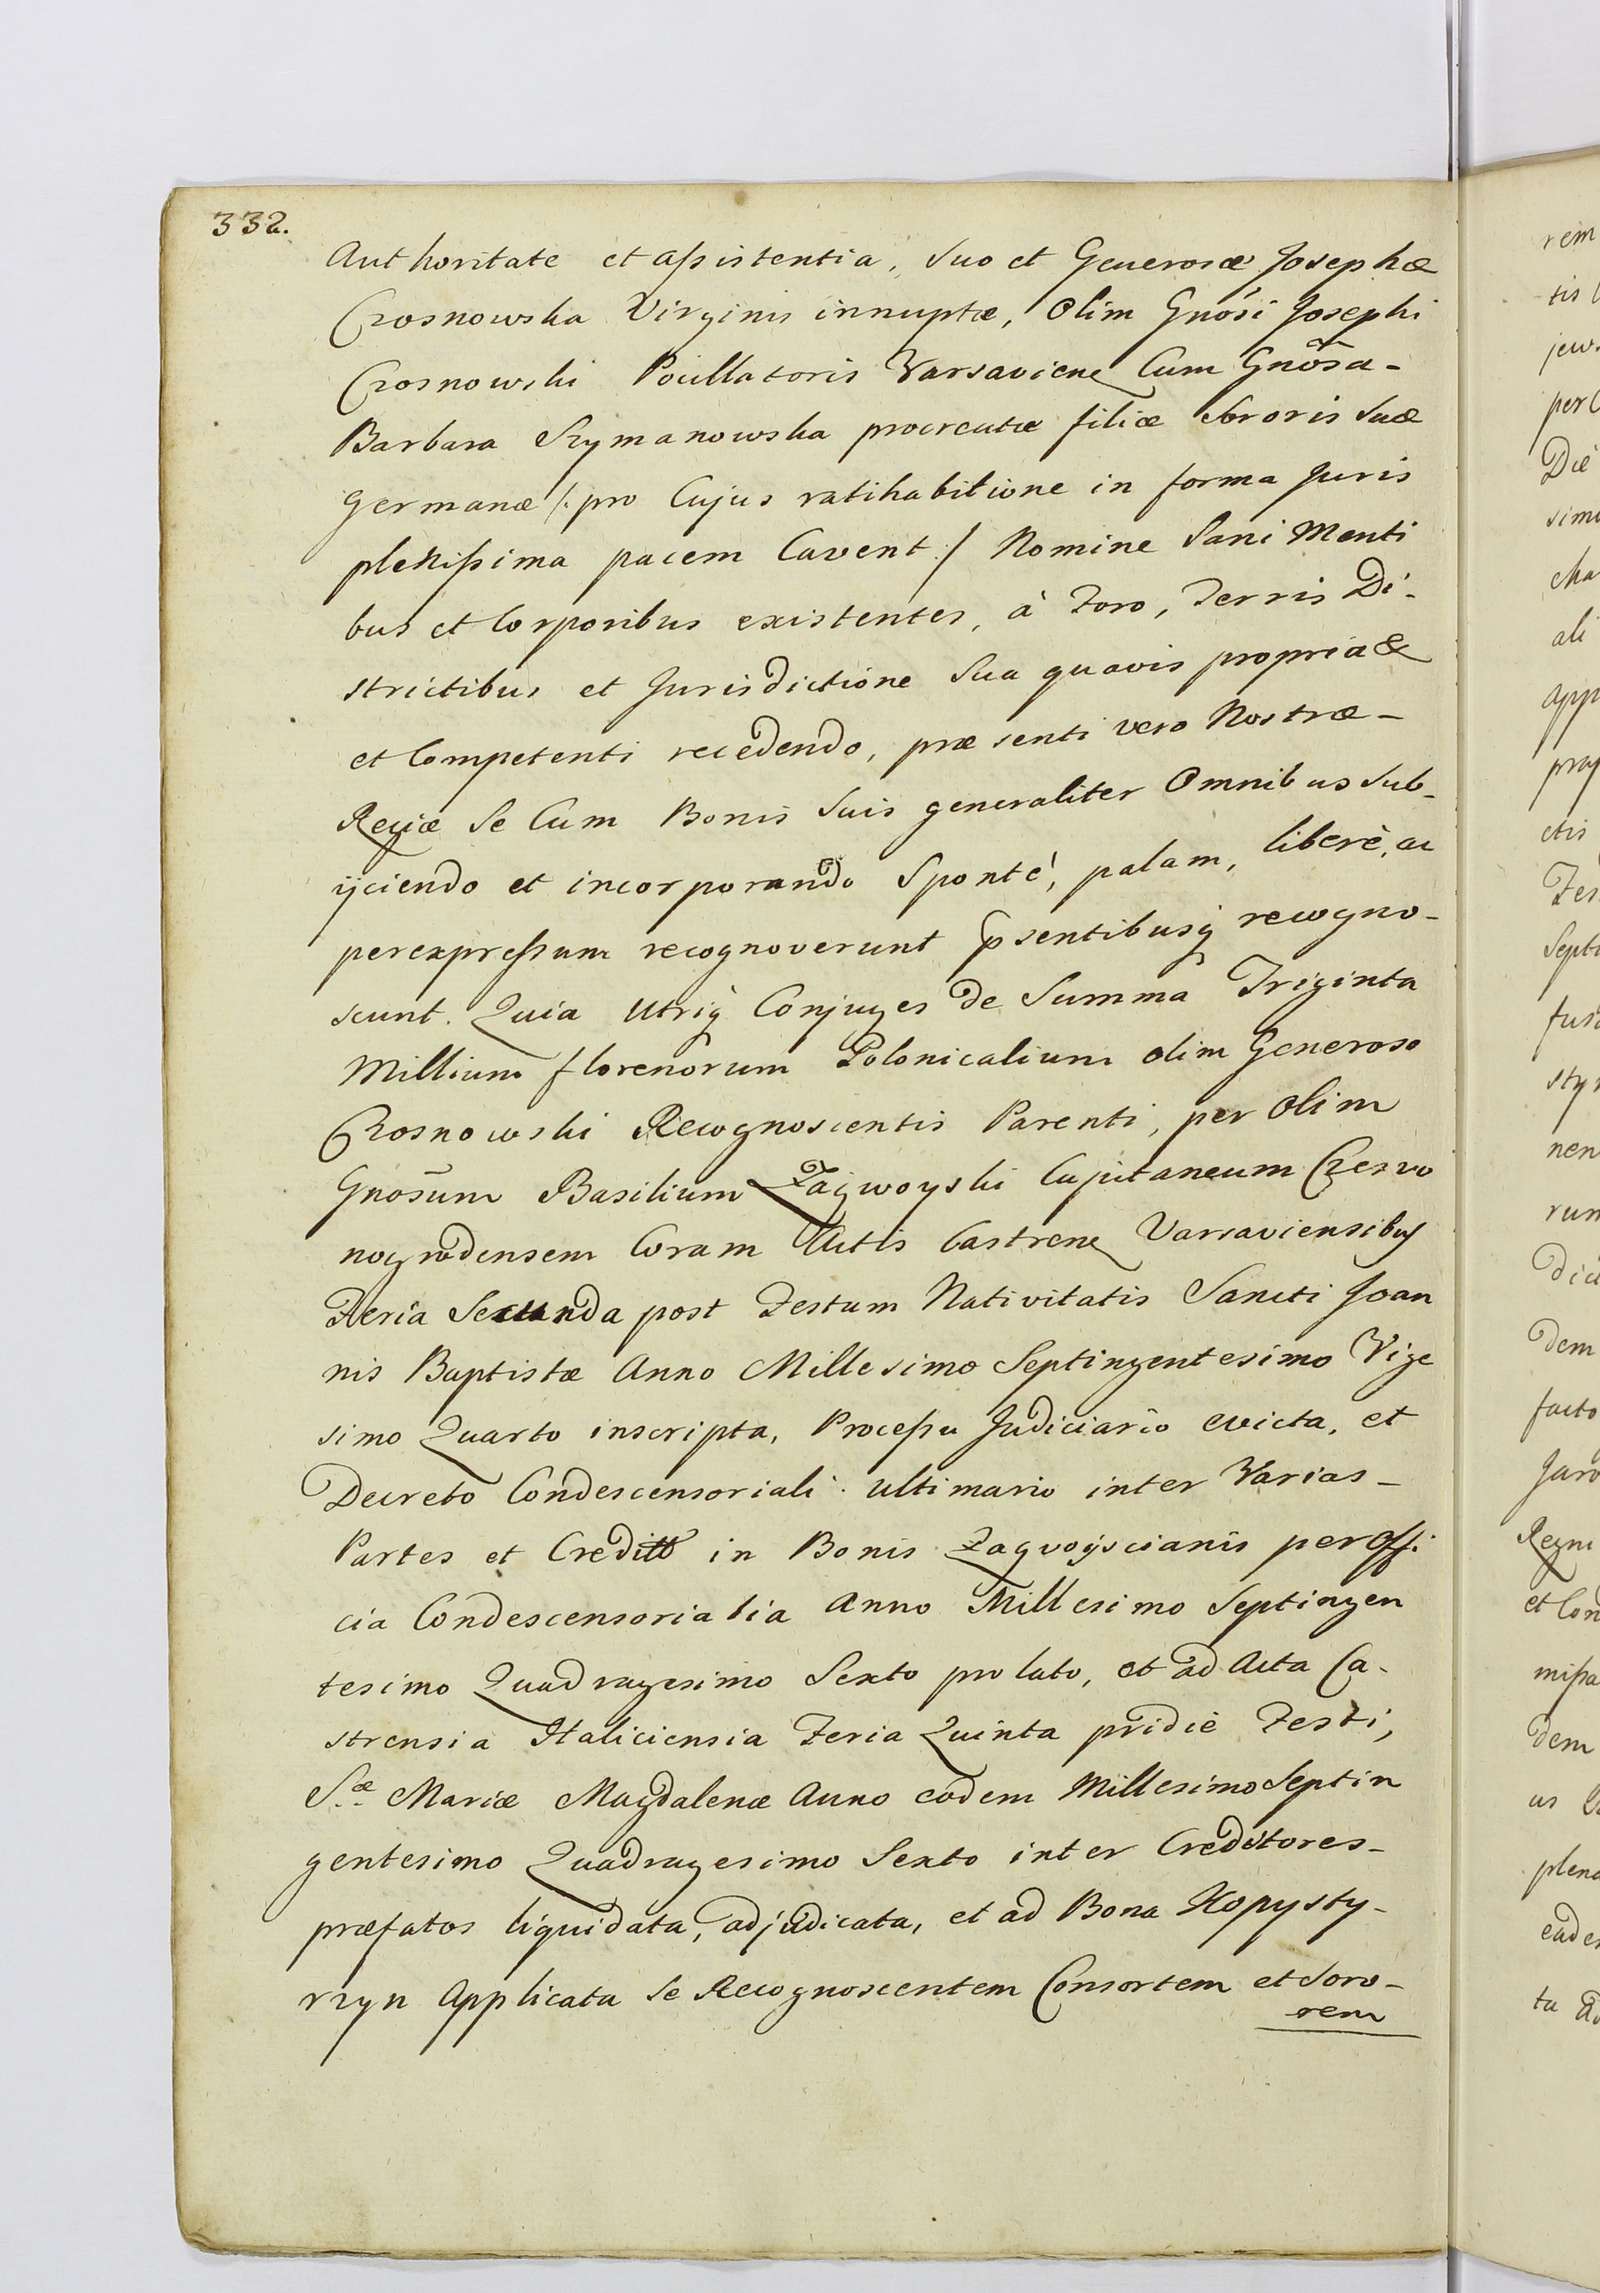 332.
Authoritate et assistentia, suo et Generosæ Josephæ
Czosnowska Virginis innuptæ, Olim Gnōsi Josephi
Czosnowski Pocillatoris Varsavien Cum Gnōsa-
Barbara Szymanowska procreatæ filiæ Sororis Suæ
germanæ /: pro Cujus ratihabitione in forma Juris
plenissima pacem Cavent :/ Nomine Sani Menti
bus et Corporibus existentes, à Foro, Terris Di-
strictibus et Jurisdictione Sua quavis propria &
et Competenti recedendo, præsenti vero Nostræ-
Regiæ Se Cum Bonis Suis generaliter Omnibus Sub-
ijciendo et incorporando Spontè, palam, liberè, ac
perexpressum recognoverunt p̄sentibusq recogno-
scunt. Quia Utriq Conjuges de Summa Triginta
Millium florenorum Polonicalium olim Generoso
Czosnowski Recognoscentis Parenti, per Olim
Gnōsum Basilium Zagwoyski Capitaneum Czerwo
nogrodensem Coram Actis Castren Varsaviensibus
Feria Secunda post Festum Nativitatis Sancti Joan
nis Baptistæ Anno Millesimo Septingentesimo Vige
simo Quarto inscripta, Processu Judiciario evicta, et
Decreto Condescensoriali ultimario inter Varias-
Partes et Creditt in Bonis Zagvoyscianis per Offi
cia Condescensorialia Anno Millesimo Septingen
tesimo Quadragesimo Sexto prolato, et ad Acta Ca-
strensia Haliciensia Feria Quinta pridiè Festi,
Sæ Mariæ Magdalenæ Anno eodem Millesimo Septin
gentesimo Quadragesimo Sexto inter Creditores-
præfatos liquidata, adjudicata, et ad Bona Kopysty-
rzyn Applicata Se Recognoscentem Consortem et Soro-
rem